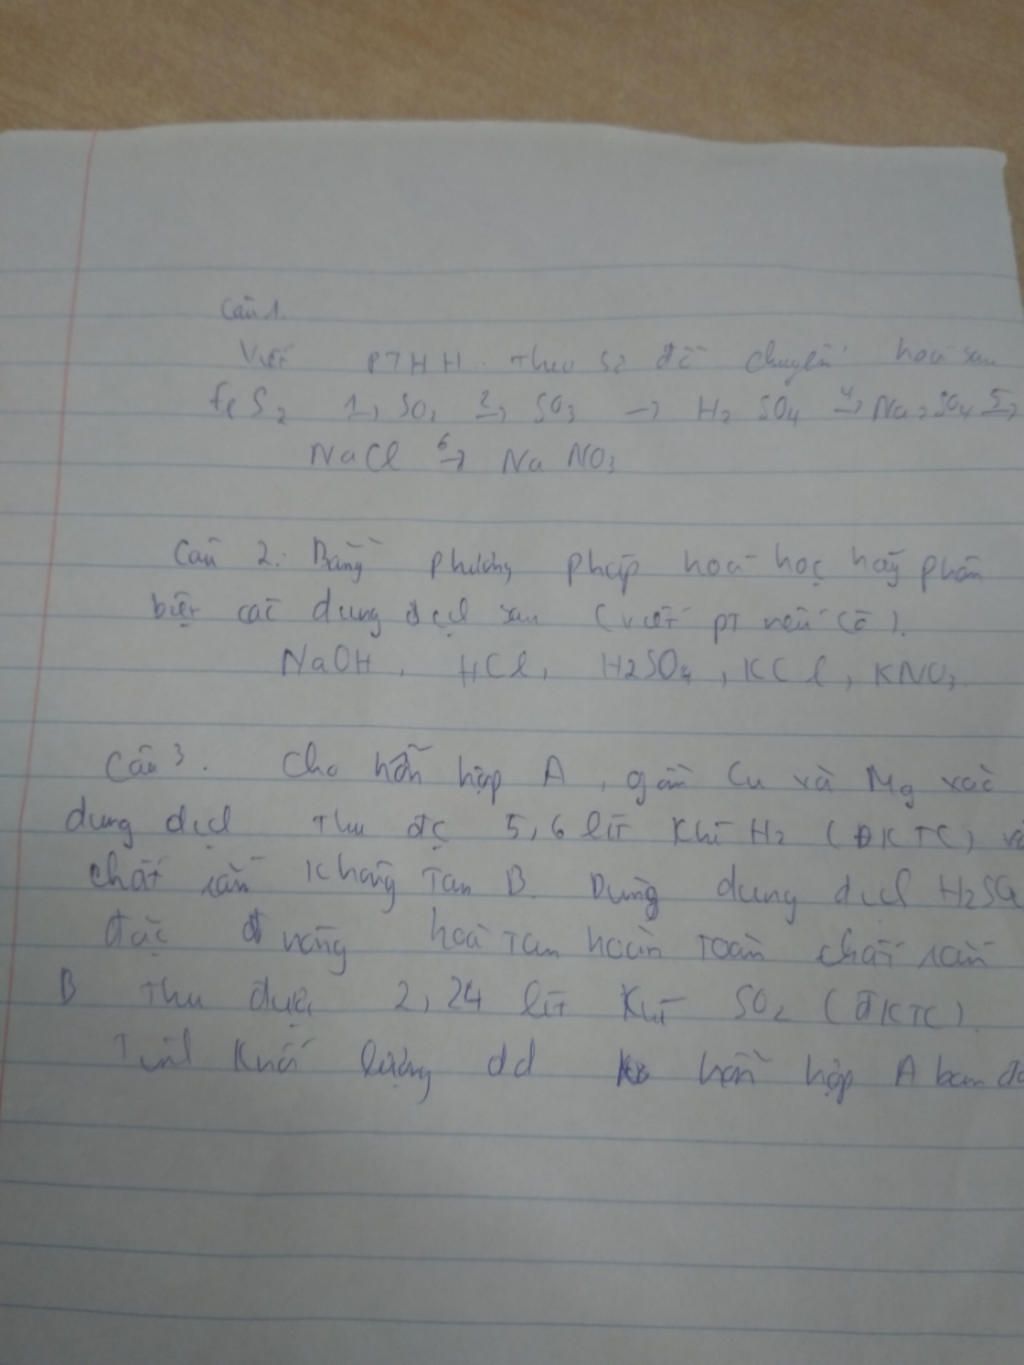 Câu 1.
Viết PTHH theo sơ đồ chuyển hoá sau
FeS2 1→ SO2 2→ SO3 → H2SO4 4→ Na2SO4 5→
NaCl 6→ NaNO3
Câu 2. Bằng phương pháp hoá học hãy phân
biệt các dung dịch sau (viết pt nếu có).
NaOH, HCl, H2SO4, KCl, KNO3
Câu 3. Cho hỗn hợp A, gồm Cu và Mg vào
dung dịch thu đc 5,6 lít khí H2 (ĐKTC) và
chất rắn không tan B. Dùng dung dịch H2SO4
đặc đ nóng hoà tan hoàn toàn chất rắn
B thu được 2,24 lít khí SO2 (ĐKTC).
Tính khối lượng dd hỗn hợp A ban